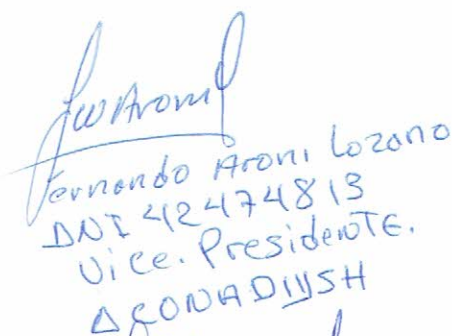 Fernando Aroni Lozano
DNI 42474813
Vice. Presidente.